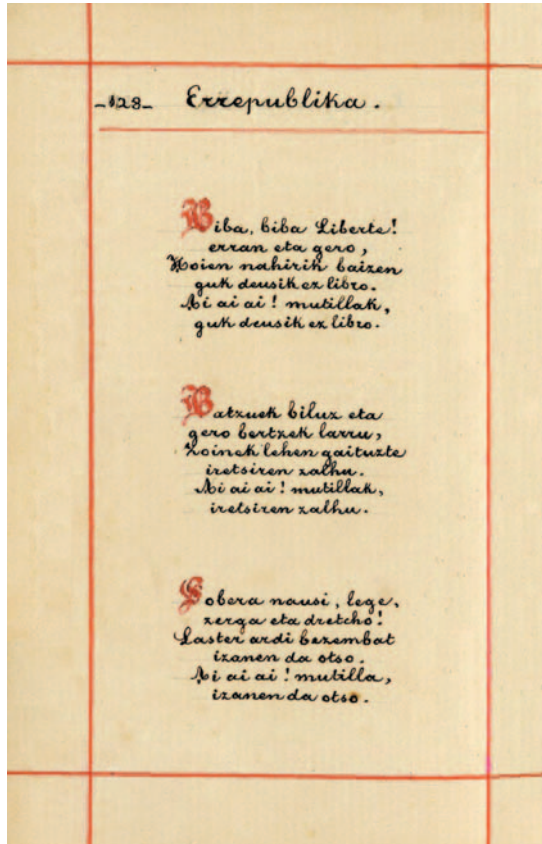 -128- Errepublika.
Biba, biba Liberte!
erran eta gero,
Hoien nahirik baizen
guk deusik ez libro.
Ai ai ai! mutillak,
guk deusik ez libro.
Batzuek biluz eta
gero bertzek larru,
Zoinek lehen gaituzte
iretsiren zalhu.
Ai ai ai! mutillak,
iretsiren zalhu.
Sobera nausi, lege,
zerga eta dretcho!
Laster ardi bezembat
izanen da otso.
Ai ai ai! mutilla,
izanen da otso.